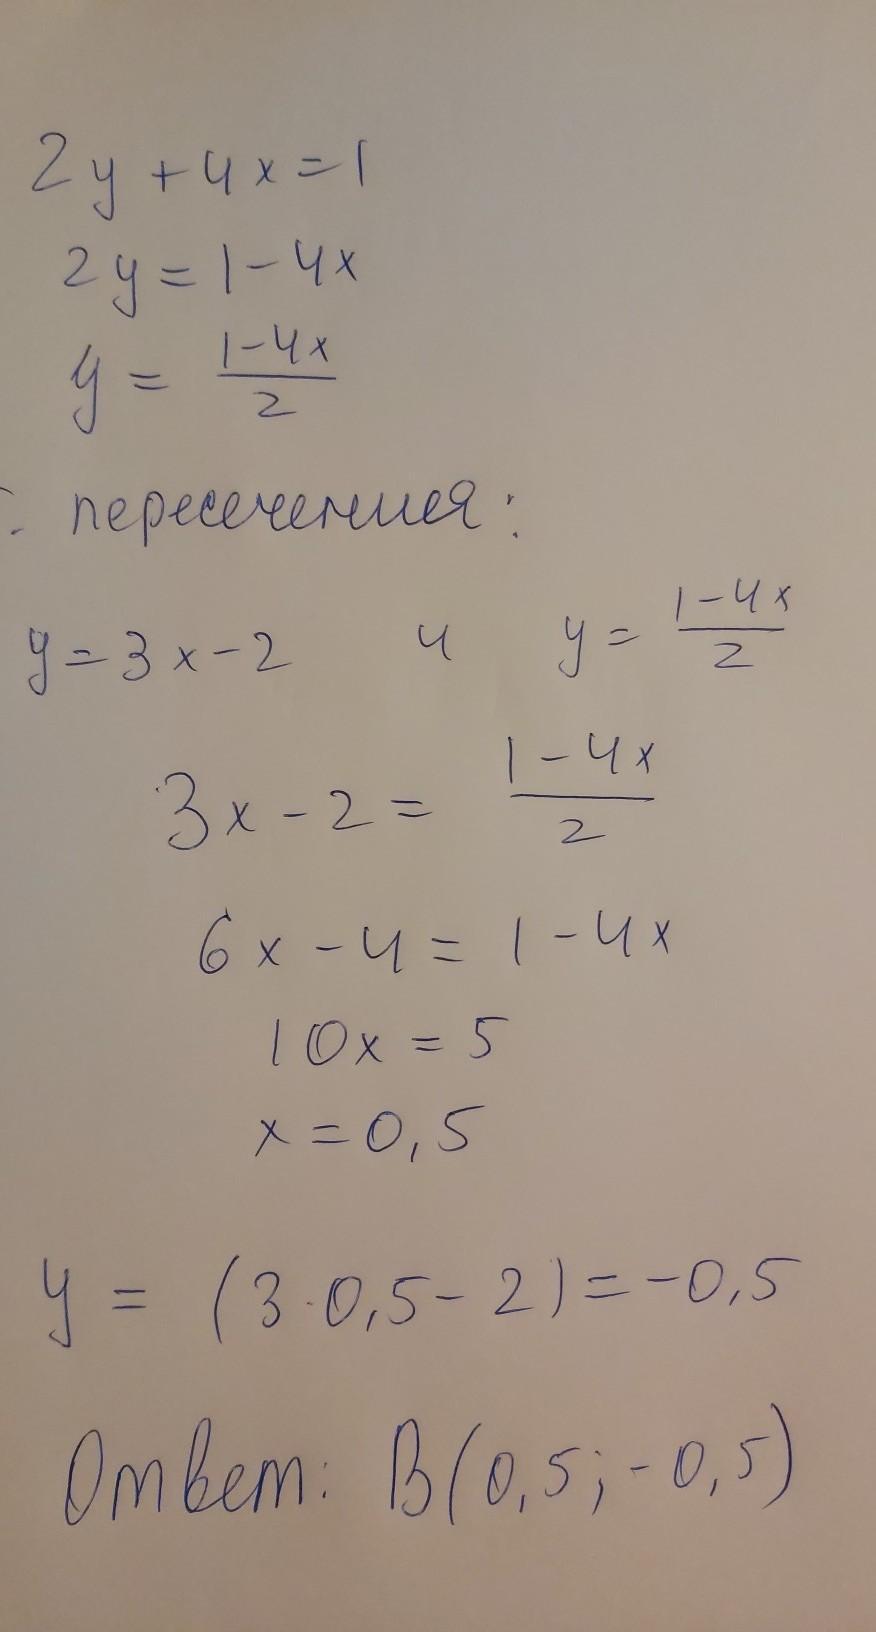 2y + 4x = 1
2y = 1 - 4x
y = \frac{1-4x}{2}
т. пересечения:
y = 3x - 2 и y = \frac{1-4x}{2}
3x - 2 = \frac{1-4x}{2}
6x - 4 = 1 - 4x
10x = 5
x = 0,5
y = (3 · 0,5 - 2) = -0,5
Ответ: В(0,5; -0,5)